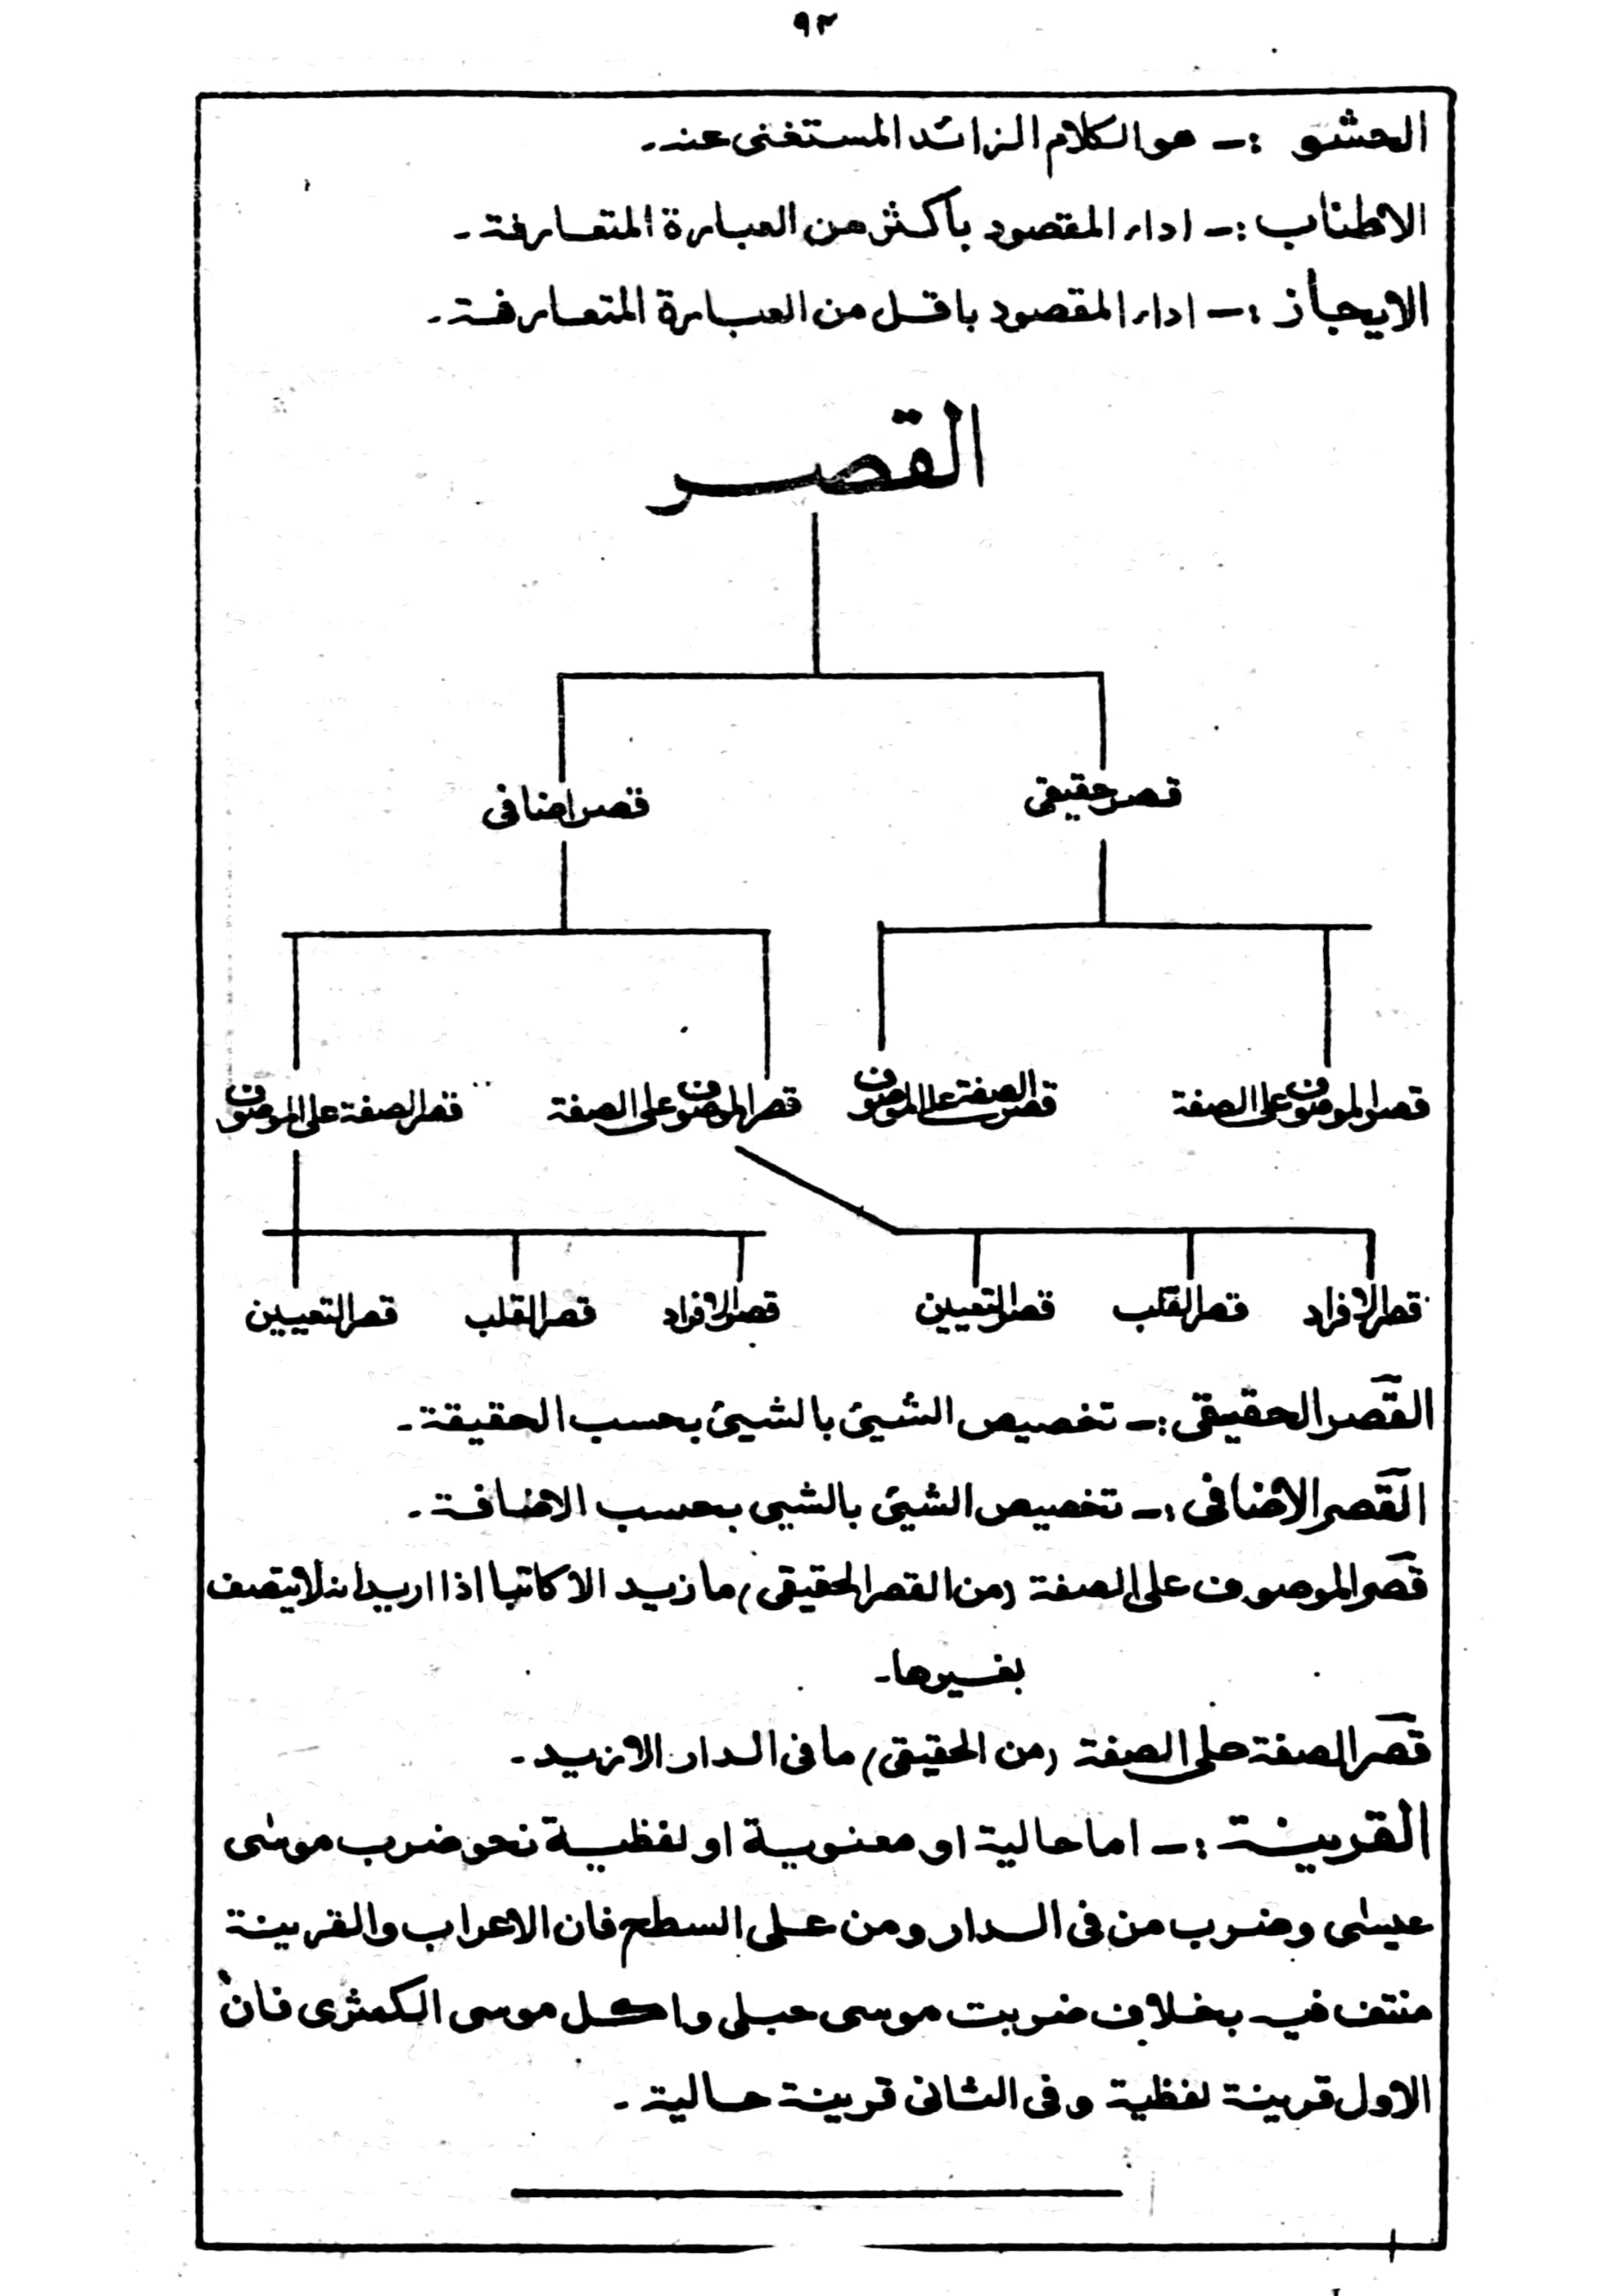 ٩٣
الحشو :- هو الكلام الزائد المستغنى عنه-
الاطناب :- اداء المقصود بأكثر من العبارة المتعارفة-
الايجاز :- اداء المقصود باقل من العبارة المتعارفة-
القصر
قصر حقيقى قصر اضافى
قصر الموصوف على الصفة قصر الصفة على الموصوف قصر الموصوف على الصفة قصر الصفة على الموصوف
قصر الافراد قصر القلب قصر التعيين قصر الافراد قصر القلب قصر التعيين
القصر الحقيقى :- تخصيص الشيئ بالشيئ بحسب الحقيقة-
القصر الاضافى :- تخصيص الشيئ بالشيى بحسب الاضافة-
قصر الموصوف على الصفة (من القصر الحقيقى) ما زيد الا كاتبا اذا اريد انه لا يتصف
بغيرها-
قصر الصفة على الصفة (من الحقيقى) ما فى الدار الا زيد-
القرينة :- اما حالية او معنوية او لفظية نحو ضرب موسٰى
عيسٰى وضرب من فى الدار ومن على السطح فان الاعراب والقرينة
منتف فيه بخلاف ضربت موسى حبلى واكل موسى الكمثرى فان
الاول قرينة لفظية وفى الثانى قرينة حالية-